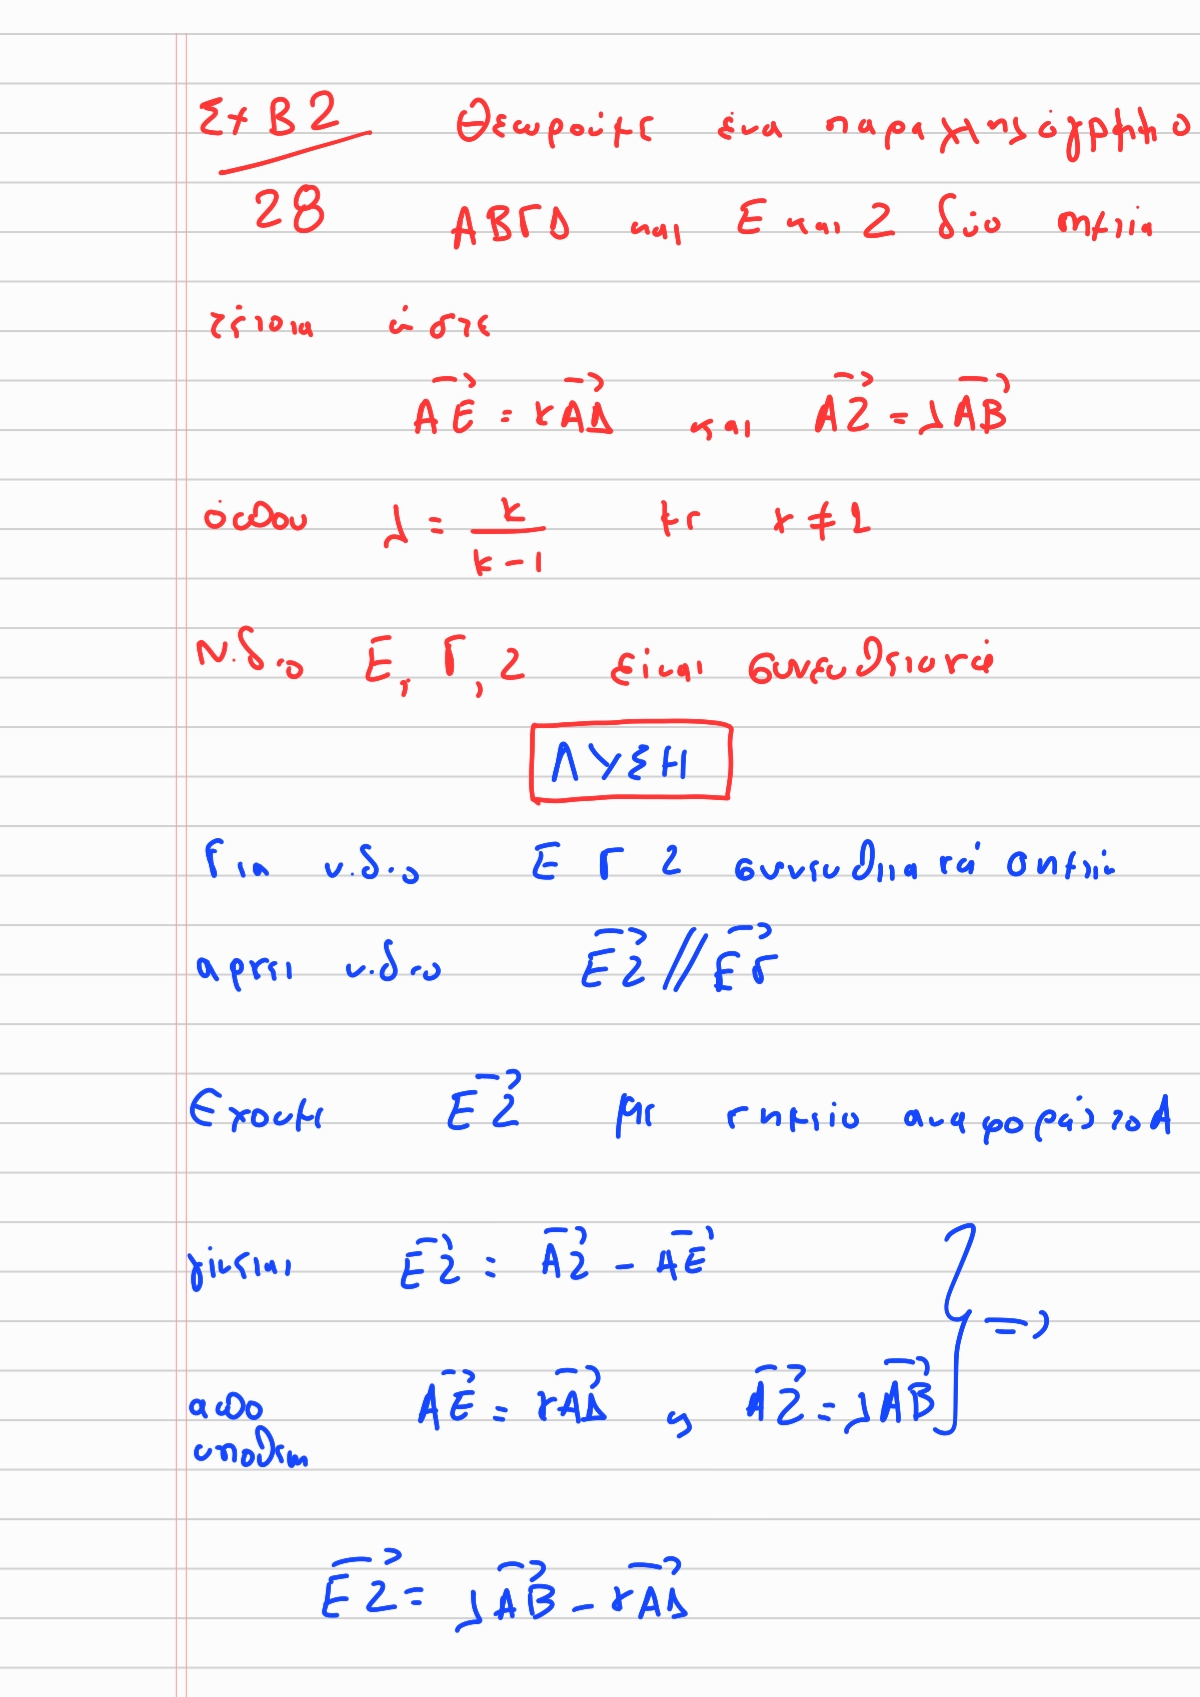 Σχ Β2
28
Θεωρούμε ένα παραλληλόγραμμο
ΑΒΓΔ και Ε και Ζ δύο σημεία
τέτοια ώστε
ΑΕ = κΑΔ και ΑΖ = λΑΒ
όπου λ = κ/(κ-1) με κ ≠ 1
Ν.δ.ο Ε, Γ, Ζ είναι συνευθειακά
ΛΥΣΗ
Για ν.δ.ο Ε Γ Ζ συνευθειακά σημεία
αρκεί ν.δ.ο ΕΖ // ΕΓ
Εχουμε ΕΖ με σημείο αναφοράς το Α
γίνεται ΕΖ = ΑΖ - ΑΕ
} =>
από ΑΕ = κΑΔ κ ΑΖ = λΑΒ
υποθεση
ΕΖ = λΑΒ - κΑΔ